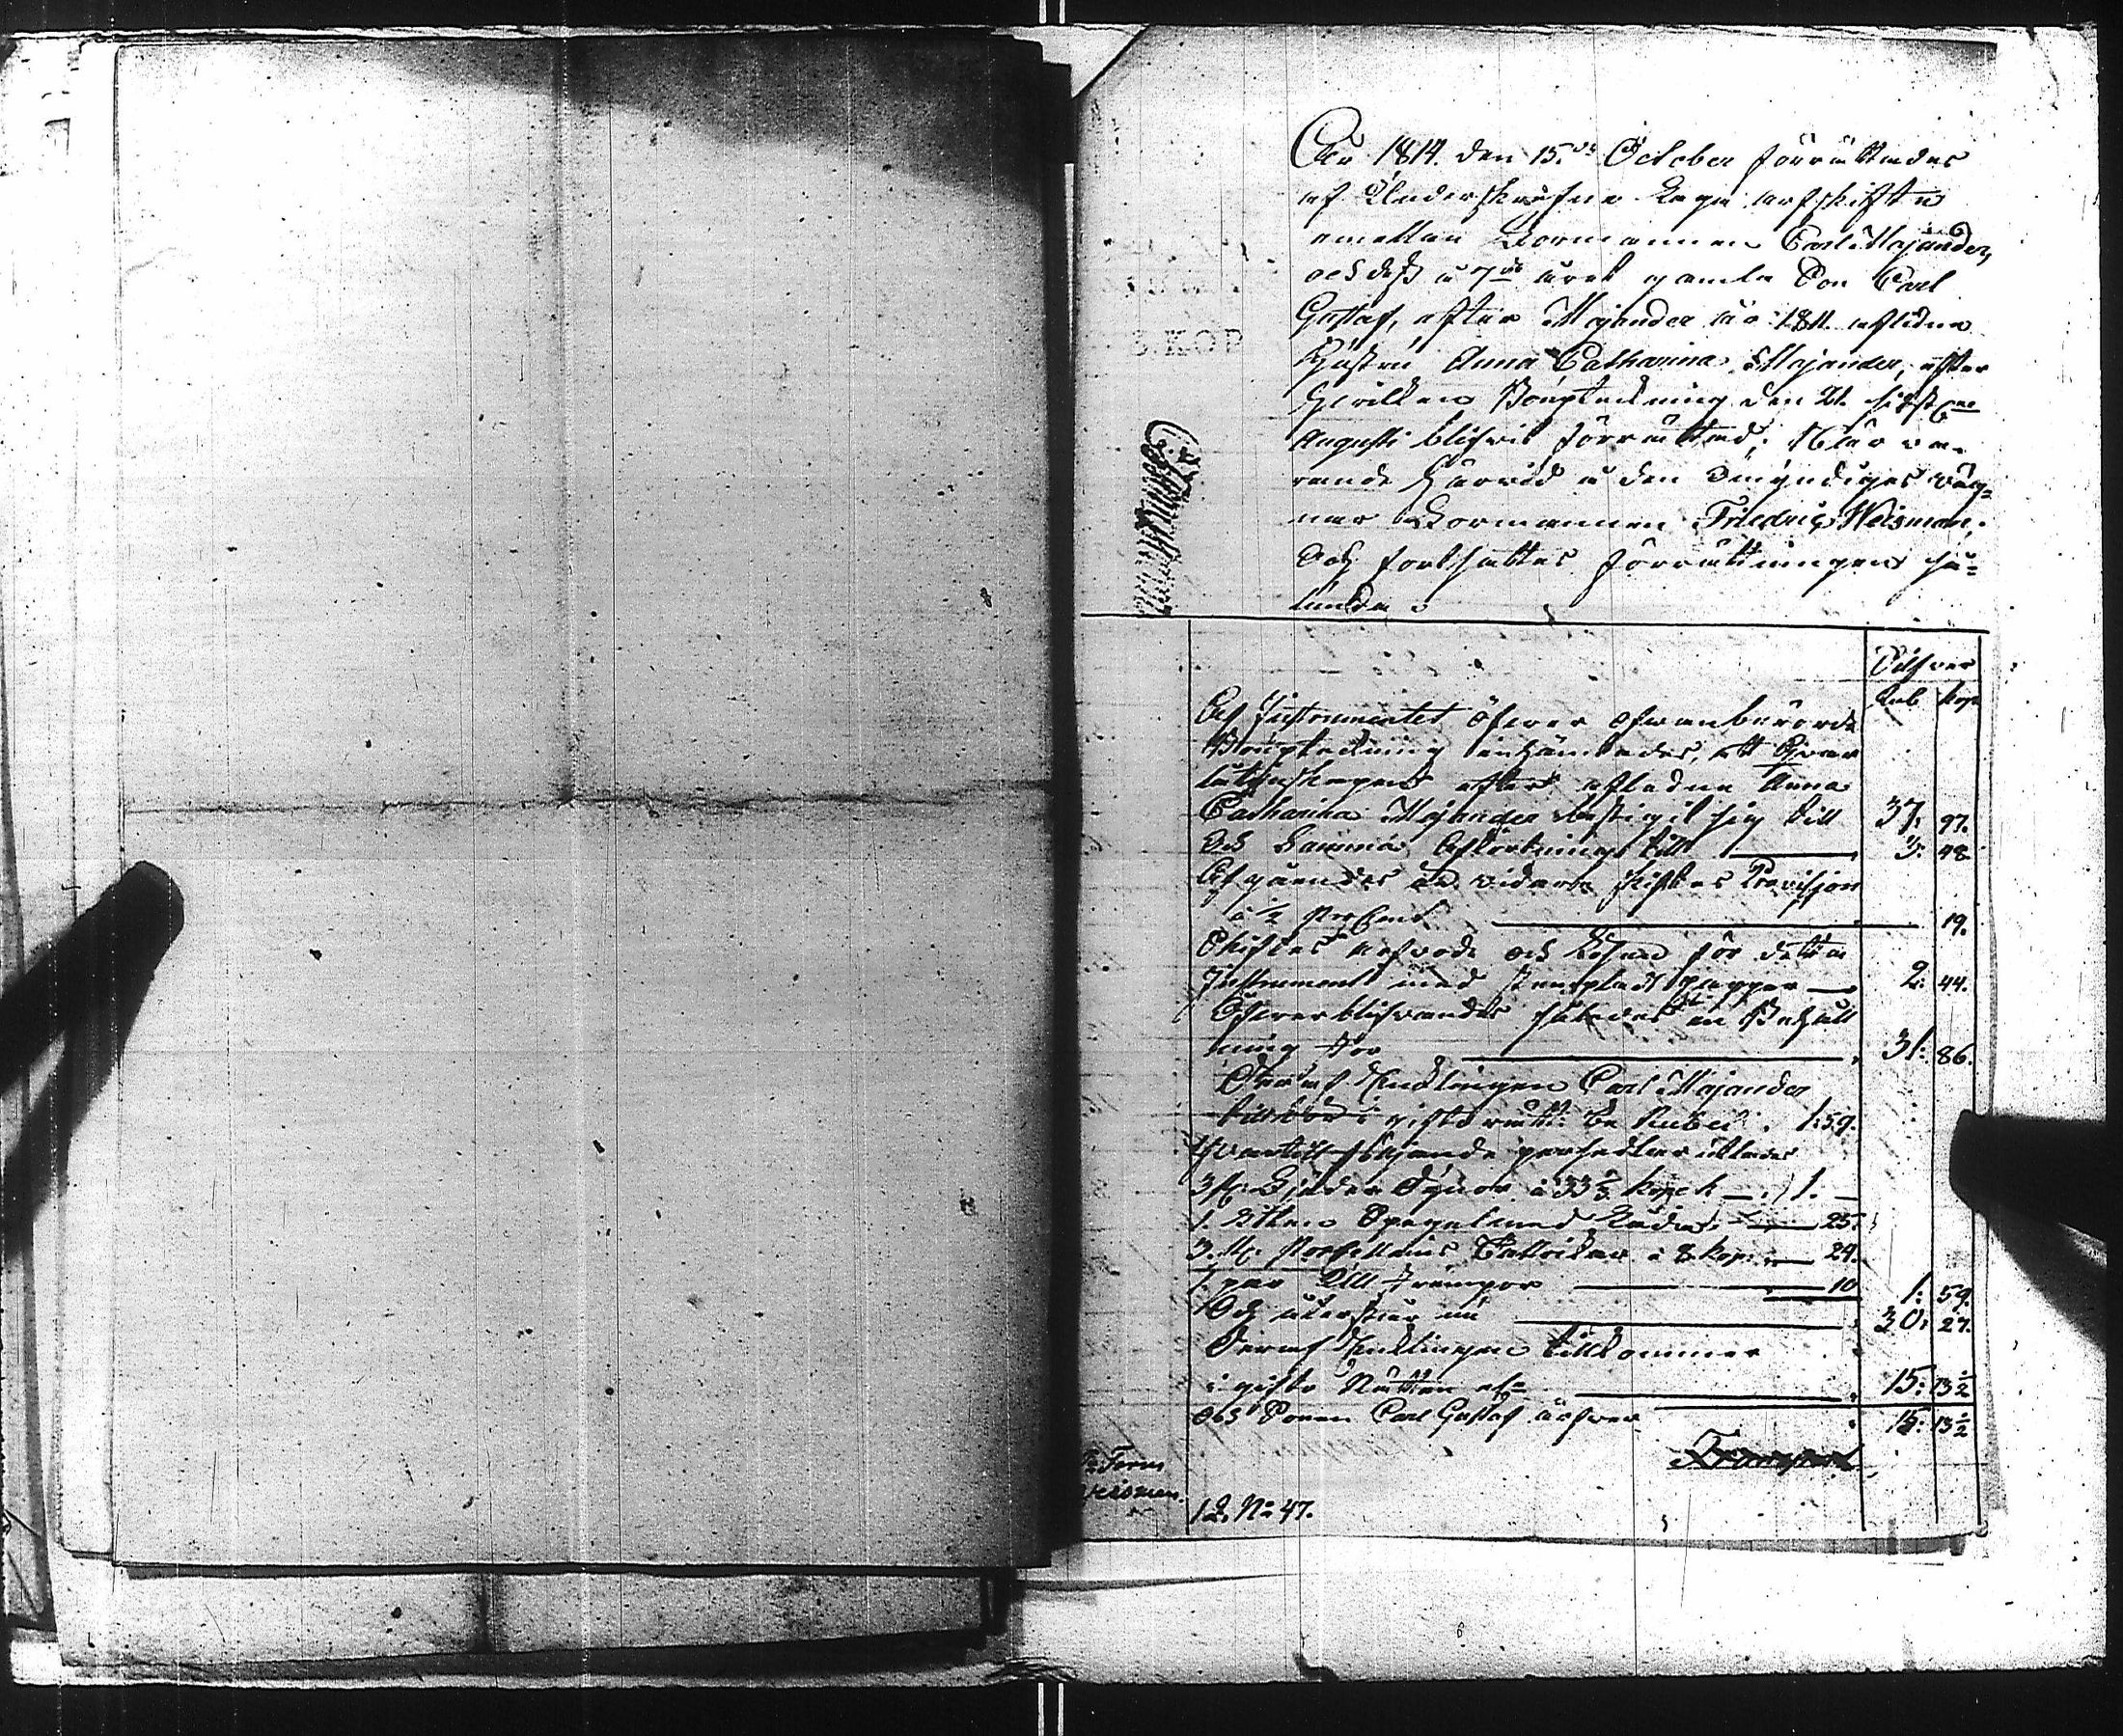 År 1814. den 15.de October förrättades
af Underskrefne Laga arfskifte
emellan Bormannen Carl Majander,
och dess å 7de året gamla Son Carl
Gustaf, efter Majanders år 1811. aflidna
Hustru Anna Catharina Majander, efter
hvilken Bouptekning den 21. sistl.
Augusti blifvit förrättad; Närva-
rande härvid å den Omyndiges väg-
nar Bormannen Friedric Weisman.
Och fortsattes förrättningen så-
lunda:
Silfver
Rub Kop
Af Instrumentet öfver ofvanberörde
Bouptekning inhämtades, att Qvar
låtenskapen efter aflidne Anna
Catharina Majander bestigit sig till 37. 97.
Och Samma Afkortning till 3. 48
Afgåendes än vidare skiftes Provision
à 1/2 proCent 19.
Skiftes arfvode och Lösen för detta
Instrument med stempladt papper 2. 44.
Öfverblifvandes således en Behåll
ning stor 31: 86.
Deraf Enklingen Carl Majander
tillkom i giftorätt: En Rubel 1:59.
hvartill följande persedlar uttages
3 st. Fjäder Dynor à 33 1/3 Kopek 1. —
1. liten Spegel med Lådor 25.
3. st. Porcellains Tallrikar à 8 kop: 24.
1 par Ull strumpor 10 1: 59.
Och återstår nu 30: 27.
Deraf Enklingen tillkommer
i gifto Rätten 15: 13 1/2
Och Sonen Carl Gustaf ärfver 15: 13 1/2
Transport
12. No 47.